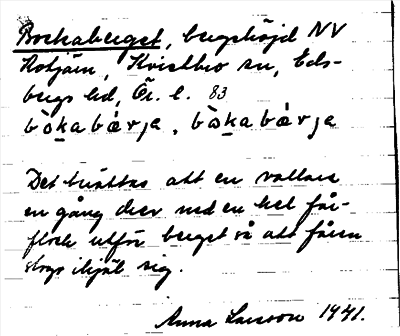 Bockaberget, bergshöjd NV
Rotjärn, Kvistbro sn, Eds-
bergs hd, Ör. l. 83
bòkabæ̀rja, bòkabæ̀rja
Det berättas att en vallare
en gång drev ned en hel får-
flock utför berget så att fåren
slogo ihjäl sig.
Anna Larsson 1941.